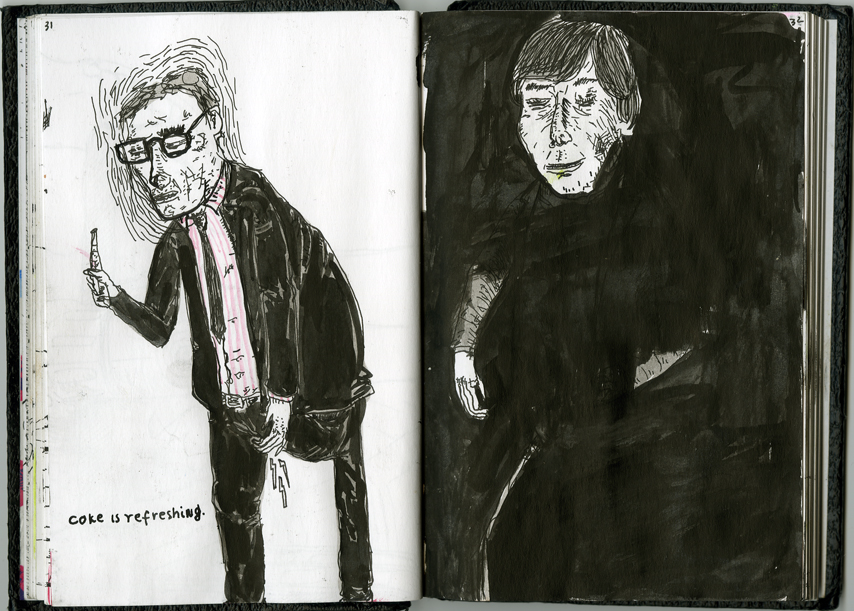 31
32
coke is refreshing.